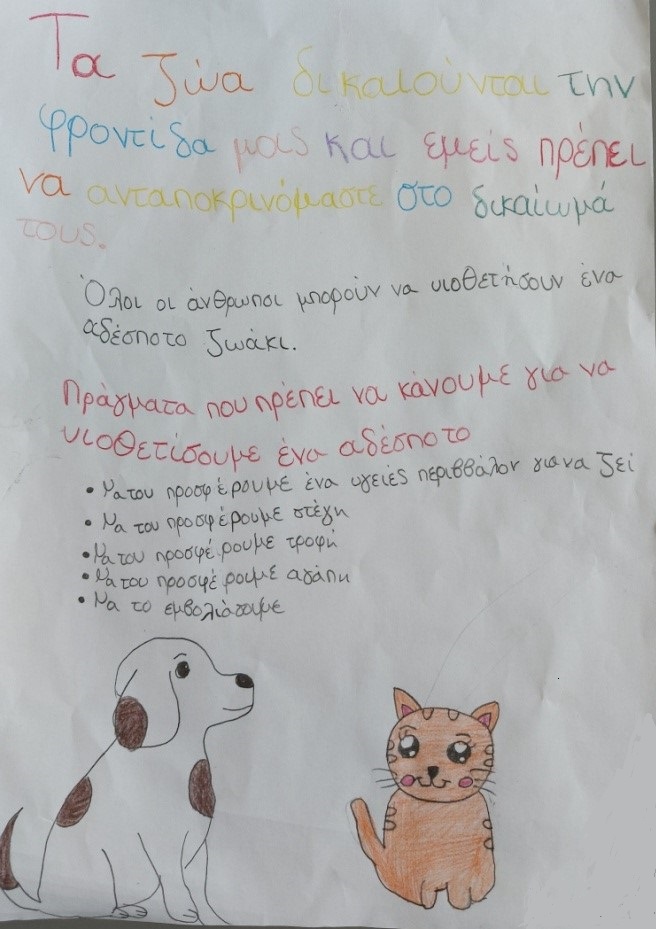 Τα ζώα δικαιούνται την
φροντίδα μας και εμείς πρέπει
να ανταποκρινόμαστε στο δικαίωμά
τους.
Όλοι οι άνθρωποι μπορούν να υιοθετήσουν ένα
αδέσποτο ζωάκι.
Πράγματα που πρέπει να κάνουμε για να
υιοθετίσουμε ένα αδέσποτο
• Να του προσφέρουμε ένα υγειές περιββάλον για να ζεί
• Να του προσφέρουμε στέγη
• Να του προσφέρουμε τροφή
• Να του προσφέρουμε αγάπη
• Να το εμβολιάσουμε